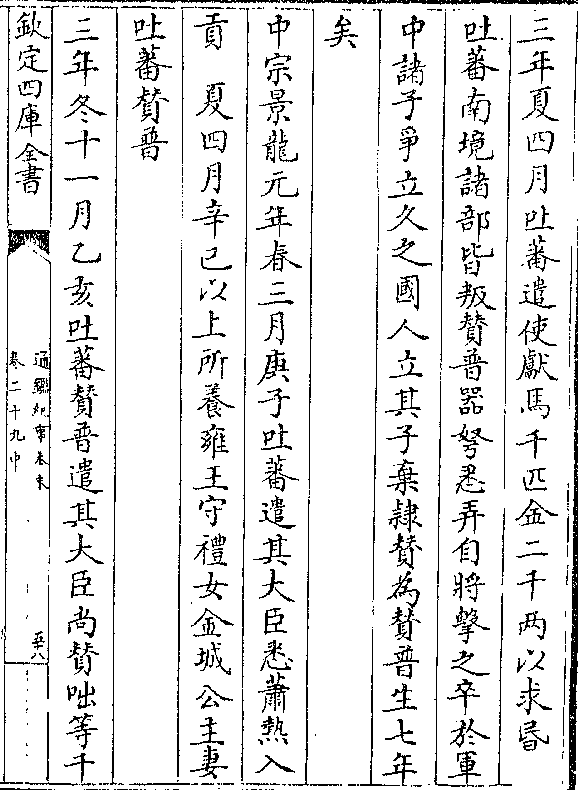 三年夏四月吐蕃遣使獻馬千匹金二千两以求昏
吐蕃南境諸部皆叛贊普器弩悉弄自將擊之卒於軍
中諸子爭立久之國人立其子棄隸贊為贊普生七年
矣
中宗景龍元年春三月庚子吐蕃遣其大臣悉薰熱入
貢 夏四月辛已以上所養雍王守禮女金城公主妻
吐蕃贊普
三年冬十一月乙亥吐蕃贊普遣其大臣尚贊咄等千
欽定四庫全書
通鑑紀事本末
卷二十九中